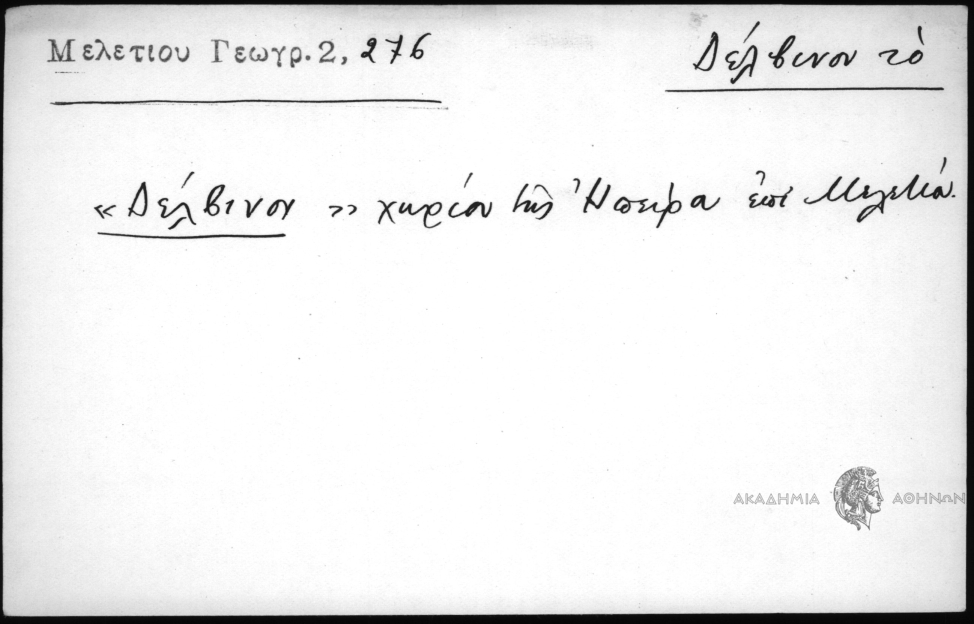 Μελετιου Γεωγρ. 2, 276
Δέλβινον τὸ
«Δέλβινον» χωρίον τῆς Ἠπείρου ἐπὶ Μελετίου.
ΑΚΑΔΗΜΙΑ ΑΘΗΝΩΝ